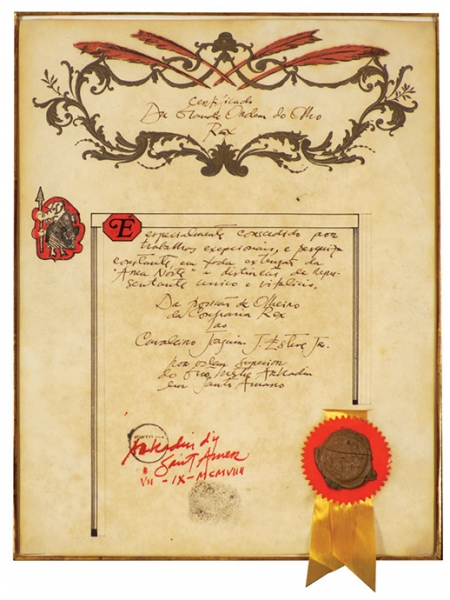 Certificado
Da Grande Ordem do Olho
Rex
É
especialmente concedido por
trabalhos excepcionais, e pesquiza
constante, em toda extensão da
"Area Norte" e distinção de repre-
sentante unico e vitalicio,
Da posição de Olheiro
da Confraria Rex
ao
Cavaleiro Joaquim J. Esteve Jr.
por ordem superior
do
em Santo Amaro
Saint Amer
VII - IX - MCMVIII